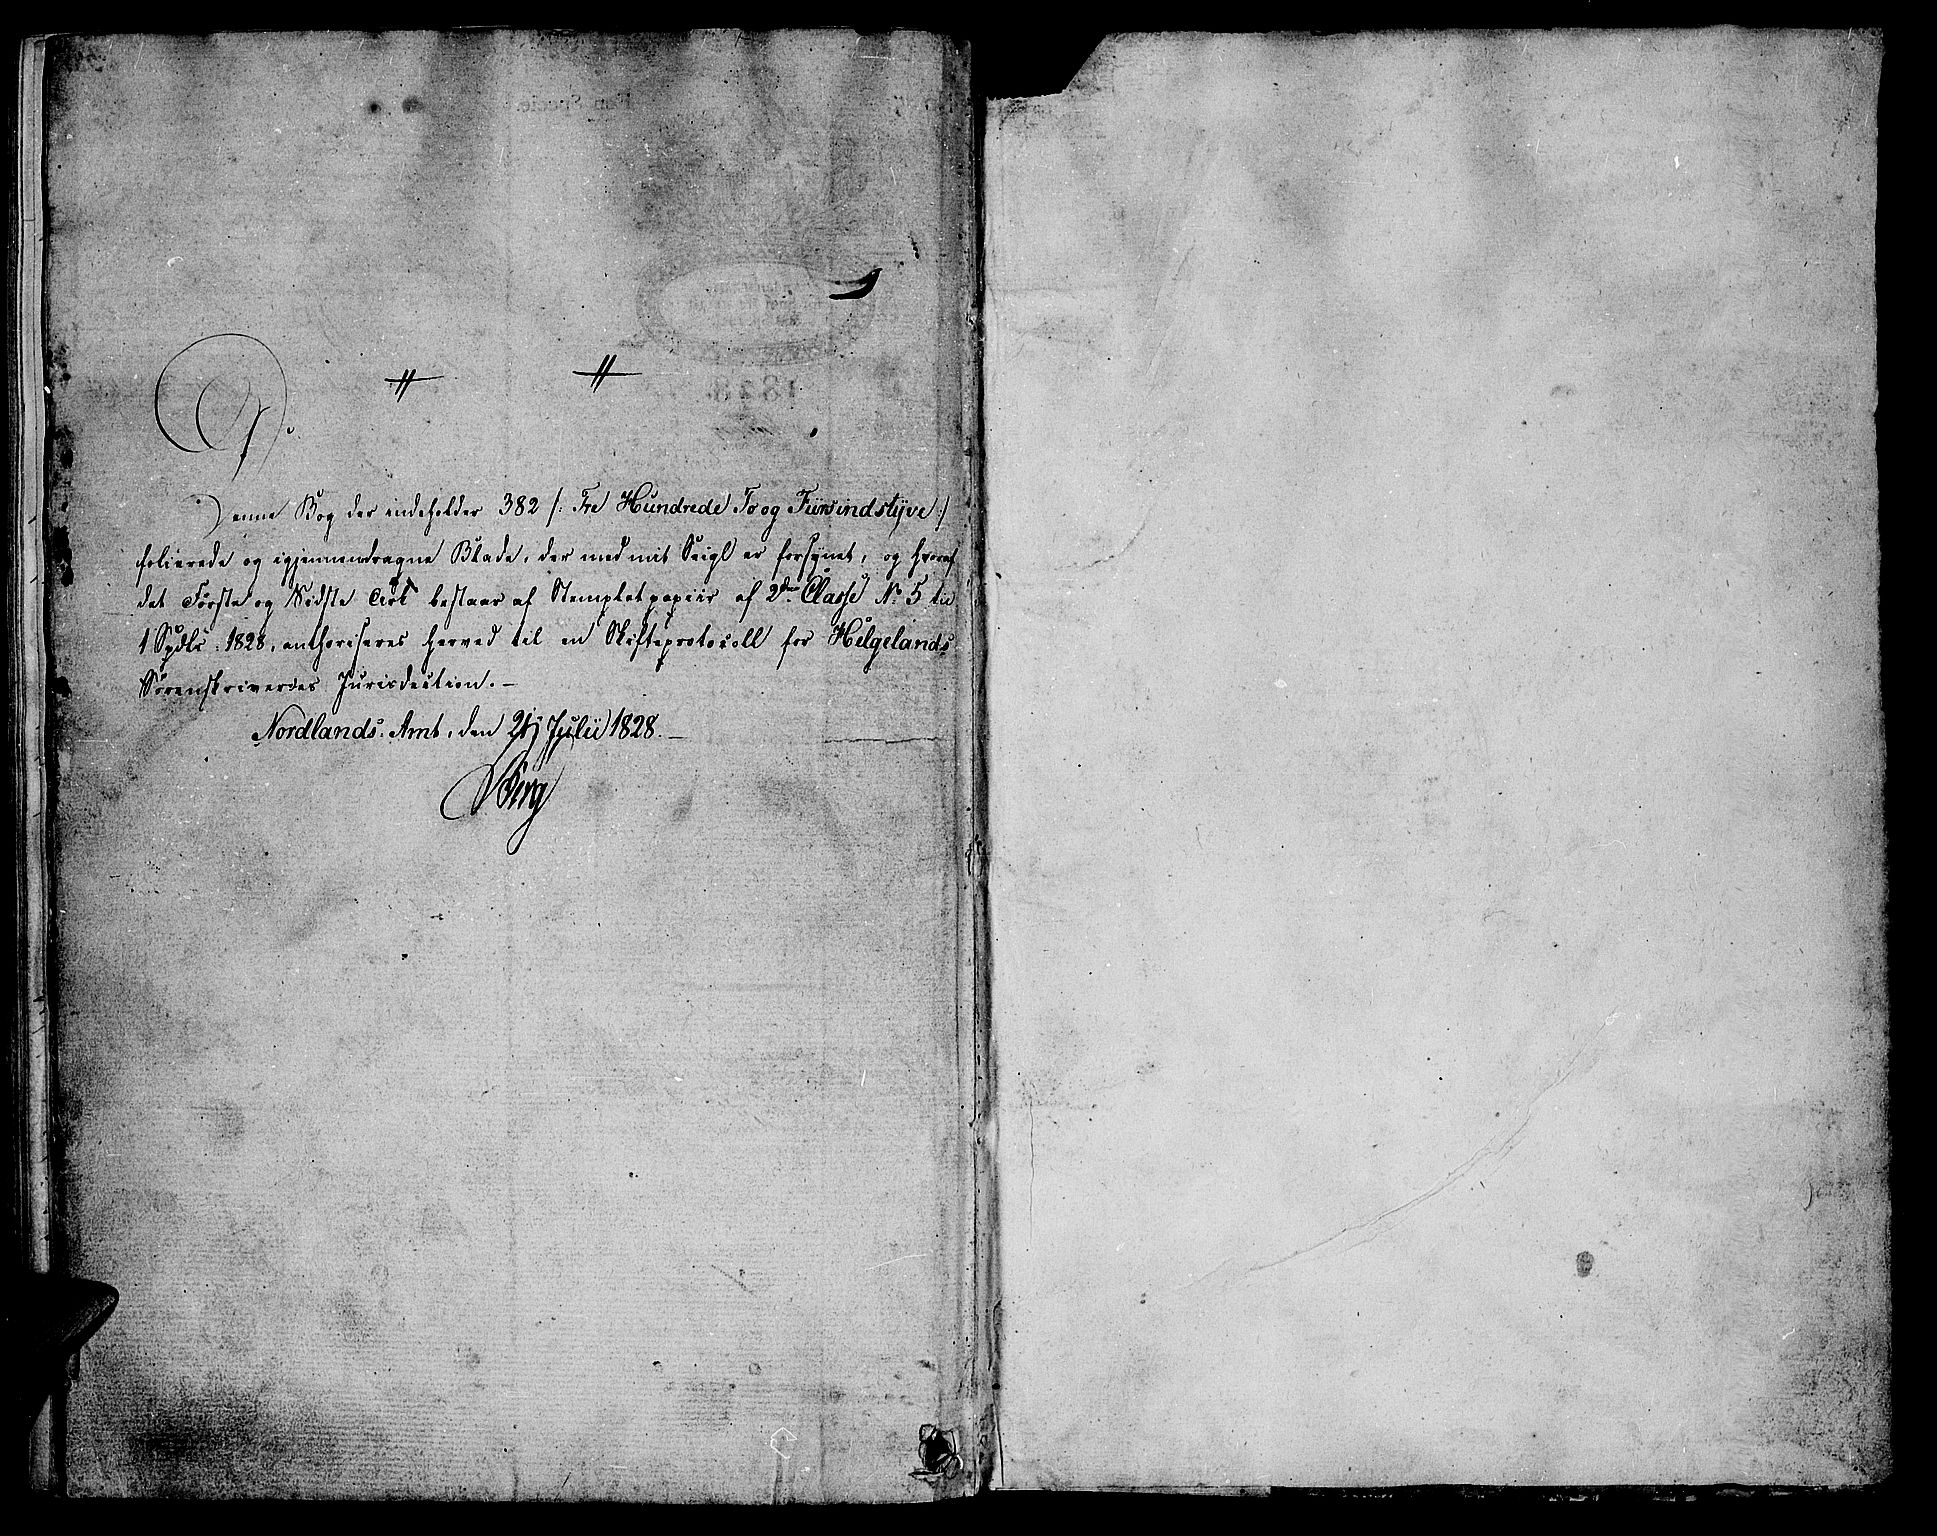 Denne Bog der indeholder 382 /: Tre Hundrede To og Fiirsindstÿve :/
folierede og igjennemdragne Blade, der med mit Seigl er forsynet, og hvoraf
det Første og Sidste Ark bestaar af Stemplet papiir af 2den Classe No 5 til
1 Spdlr: 1828, authoriseres herved til en Skifteprotocoll for Helgelands
Sorenskriveries Jurisdiction. —
Nordlands Amt, den Julii 1828. —
Berg
1828.